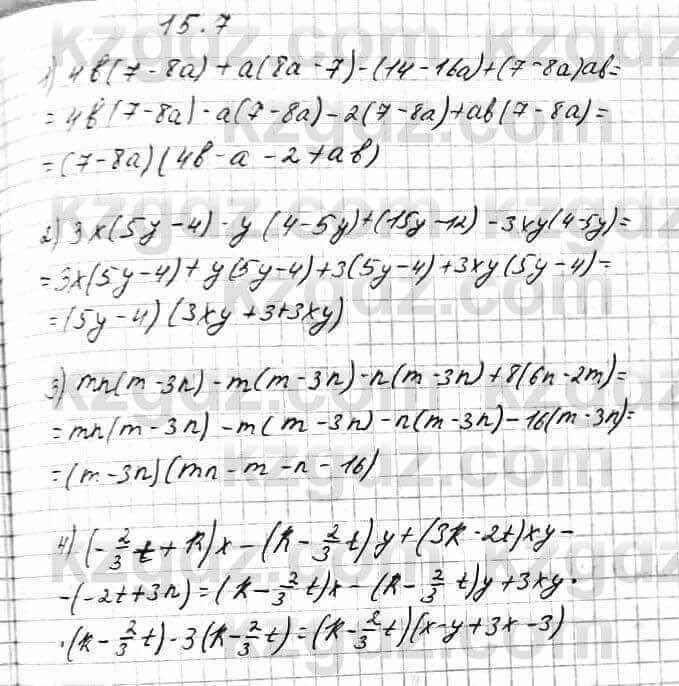 15.7
1) 4b(7-8a)+a(8a-7)-(14-16a)+(7-8a)ab=
=4b(7-8a)-a(7-8a)-2(7-8a)+ab(7-8a)=
=(7-8a)(4b-a-2+ab)
2) 3x(5y-4)-y(4-5y)+(15y-12)-3xy(4-5y)=
=3x(5y-4)+y(5y-4)+3(5y-4)+3xy(5y-4)=
=(5y-4)(3xy+3+3xy)
3) mn(m-3n)-m(m-3n)-n(m-3n)+8(6n-2m)=
=mn(m-3n)-m(m-3n)-n(m-3n)-16(m-3n)=
=(m-3n)(mn-m-n-16)
4) (-2/3t+k)x-(k-2/3t)y+(3k-2t)xy-
-(-2t+3n)=(k-2/3t)x-(k-2/3t)y+3xy·
·(k-2/3t)-3(k-2/3t)=(k-2/3t)(x-y+3x-3)
kzgdz.com